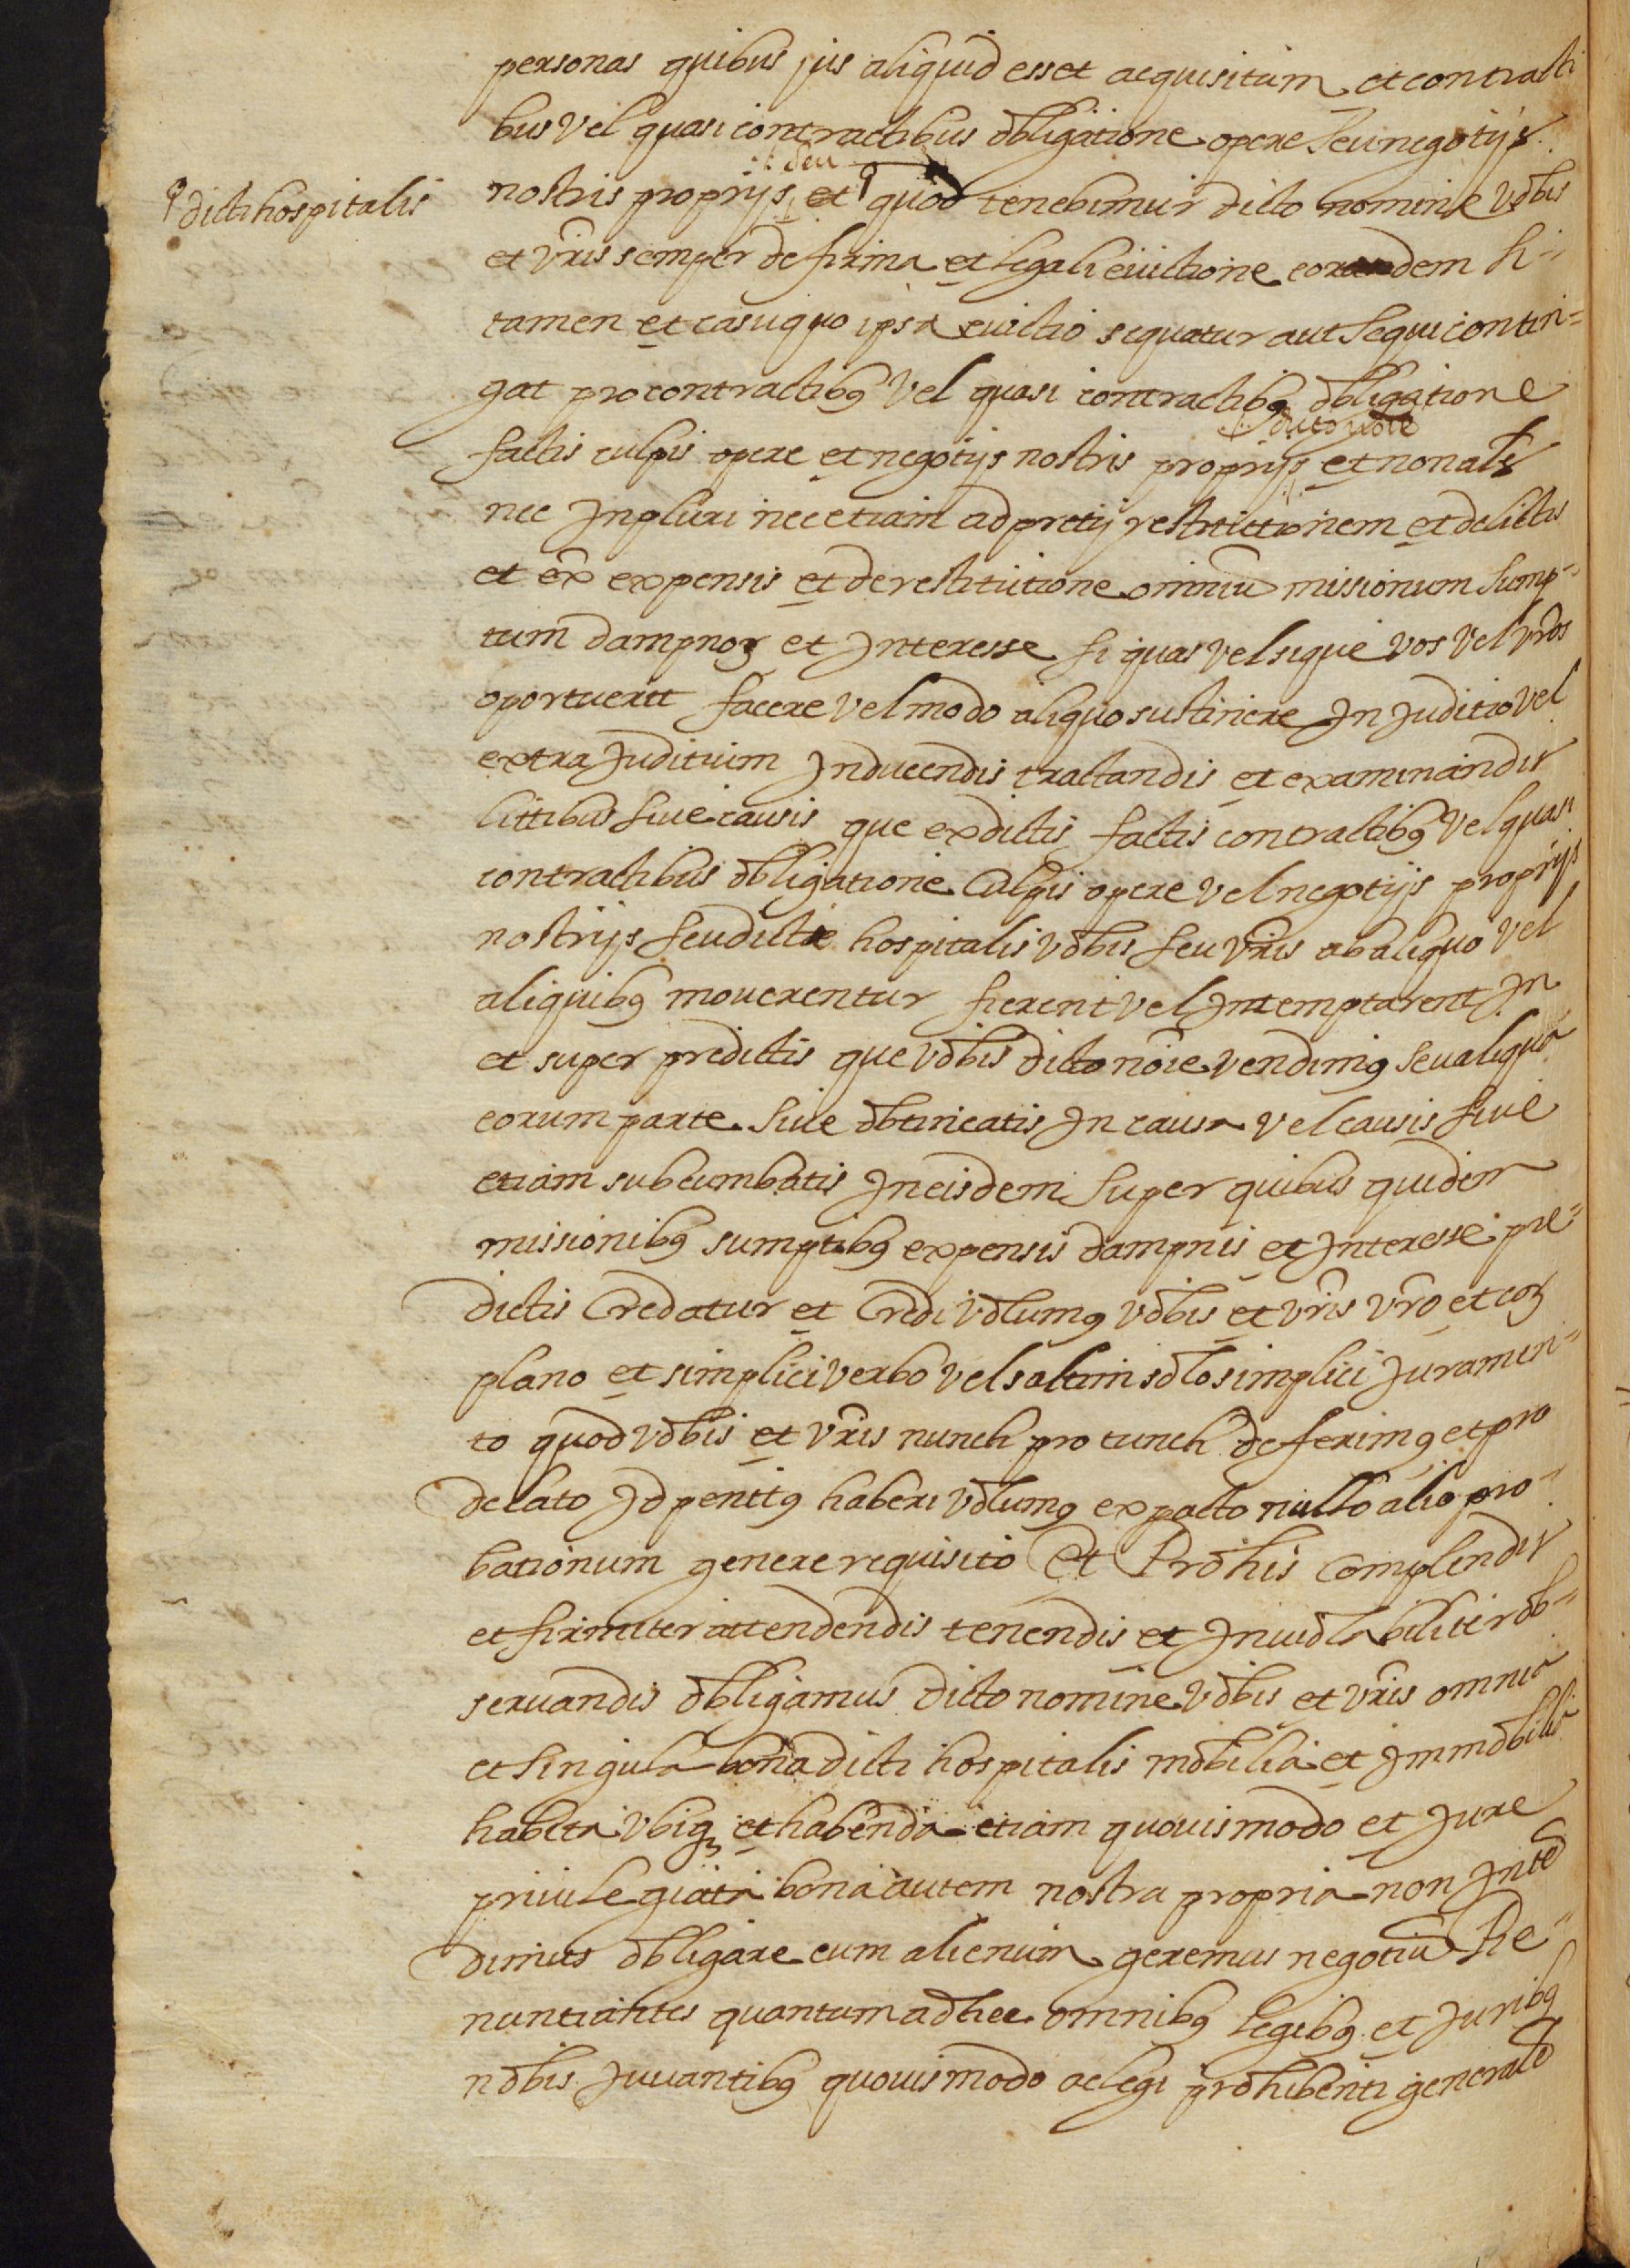 personas quibus jus aliquid esset acquisitum et contracti
bus vel quasi contractibus obligatione opere seu negotijs
seu
dicti hospitalis
nostris proprijs et quod tenebimur dicto nomine vobis
et vr̃is semper de firma et legali euictione eorundem si
tamen et casu quo ipsa euictio sequatur aut sequi contin=
gat pro contractibꝰ vel quasi contractibꝰ obligatione
dicto noie
factis culpis opere et negotijs nostris proprijs et non als
nec Jn pluri nec etiam ad pretij restrictionem et delictis
et ex expensis et de restitutione omniũ missionum sump=
tum dampnoꝝ et Jnteresse si quas vel si que vos vel vr̃os
oportuerit facere vel modo aliquo sustinere Jn Juditio vel
extra Juditium Jnducendis tractandis et examinandis
littibus siue causis que ex dictis factis contractibꝰ vel quasi
contractibus obligatione Culpis opere vel negotijs proprijs
nostrijs seu dicti hospitalis vobis seu vr̃is ab aliquo vel
aliquibꝰ mouerentur fierent vel Jntemptarent Jn
et super predictis que vobis dicto noĩe vendimꝰ seu aliqua
eorum parte siue obtineatis Jn causa vel causis siue
etiam subcumbatis Jn eisdem super quibus quidem
missionibꝰ sumptibꝰ expensis dampnis et Jnteresse pre=
dictis Credatur et Credi volumꝰ vobis et vr̃is vr̃o et eoꝝ
plano et simplici verbo vel saltim solo simplici Juramen=
to quod vobis et vr̃is nunch pro tunch deferimꝰ et pro
delato Jd penitꝰ haberi volumꝰ ex pacto nullo alio pro=
bationum genere requisito Et Pro his Complendis
et firmiter attendendis tenendis et Jnuiolabiliter ob=
seruandis obligamus dicto nomine vobis et vr̃is omnia
et singula bona dicti hospitalis mobilia et Jmmobilia
habita vbiqꝫ et habenda etiam quouismodo et Jure
priuilegiata bona autem nostra propria non Jnten
dimus obligare cum alienum geremus negotiũ Re=
nuntiantes quantum ad hec omnibꝰ legibꝰ et Juribꝰ
nobis Juuantibꝰ quouismodo ac legi prohibenti generale